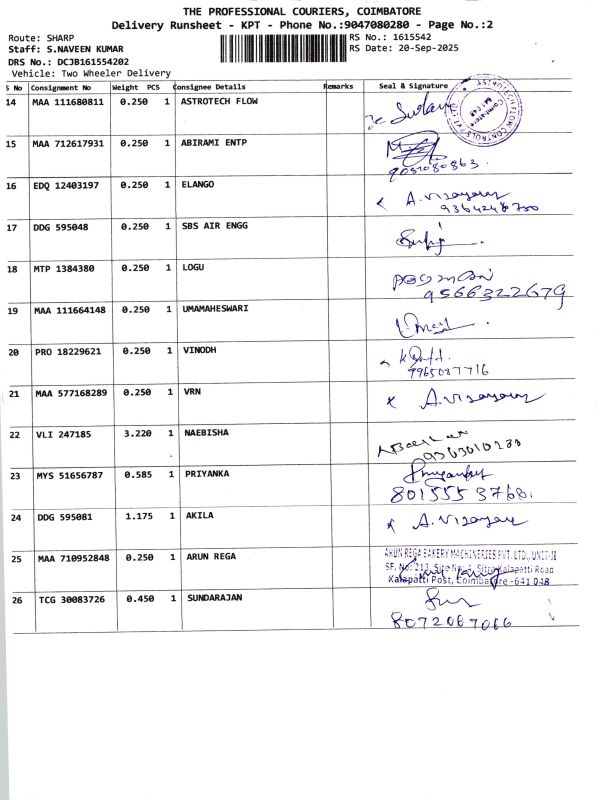 THE PROFESSIONAL COURIERS, COIMBATORE
Delivery Runsheet - KPT - Phone No.:9047080280 - Page No.:2
Route: SHARP
RS No.: 1615542
Staff: S.NAVEEN KUMAR
RS Date: 20-Sep-2025
DRS No.: DCJB161554202
Vehicle: Two Wheeler Delivery
S No Consignment No Weight PCS Consignee Details Remarks Seal & Signature
14 MAA 111680811 0.250 1 ASTROTECH FLOW
ASTROTECH FLOW CONTROLS PVT LTD Coimbatore
15 MAA 712617931 0.250 1 ABIRAMI ENTP
16 EDQ 12403197 0.250 1 ELANGO A. Vijayaray
17 DDG 595048 0.250 1 SBS AIR ENGG
18 MTP 1384380 0.250 1 LOGU
9566322679
19 MAA 111664148 0.250 1 UMAMAHESWARI
20 PRO 18229621 0.250 1 VINODH
21 MAA 577168289 0.250 1 VRN A. Vijayaray
22 VLI 247185 3.220 1 NAEBISHA
23 MYS 51656787 0.585 1 PRIYANKA
8015553768.
24 DDG 595081 1.175 1 AKILA A. Vijayaray
25 MAA 710952848 0.250 1 ARUN REGA ARUN REGA BAKERY MACHINERIES PVT. LTD., UNIT-II
SF. No: 213, Site No: Sitra Kalapatti Road
Kalapatti Post, Coimbatore -641 048
26 TCG 30083726 0.450 1 SUNDARAJAN
8072087066